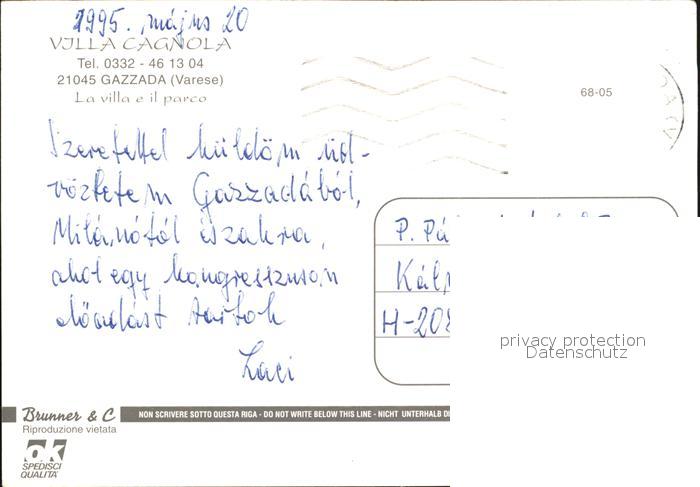 1995. május 20
VILLA CAGNOLA
Tel. 0332 - 46 13 04
21045 GAZZADA (Varese)
La villa e il parco
68-05
Szeretettel küldöm üd-
vözletem Gazzadából,
Milánótól északra,
ahol egy kongresszuson
előadást tartok
Laci
P. Pá
Kál
H-208
privacy protection
Datenschutz
Brunner & C
Riproduzione vietata
NON SCRIVERE SOTTO QUESTA RIGA - DO NOT WRITE BELOW THIS LINE - NICHT UNTERHALB DI
ok
SPEDISCI
QUALITA'